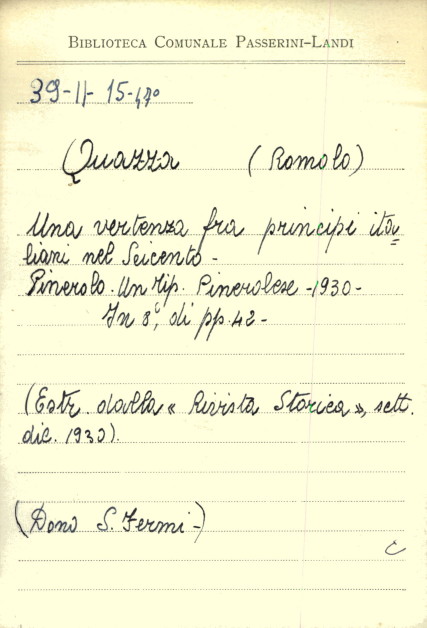 BIBLIOTECA COMUNALE PASSERINI-LANDI
39-II-15-47°
Quazza (Romolo)
Una vertenza fra principi ita=
liani nel Seicento-
Pinerolo. Un Tip. Pinerolese -1930-
In 8°, di pp. 42-
(Estr. dalla « Rivista Storica », sett.
dic. 1930).
(Dono S. Fermi-)
C